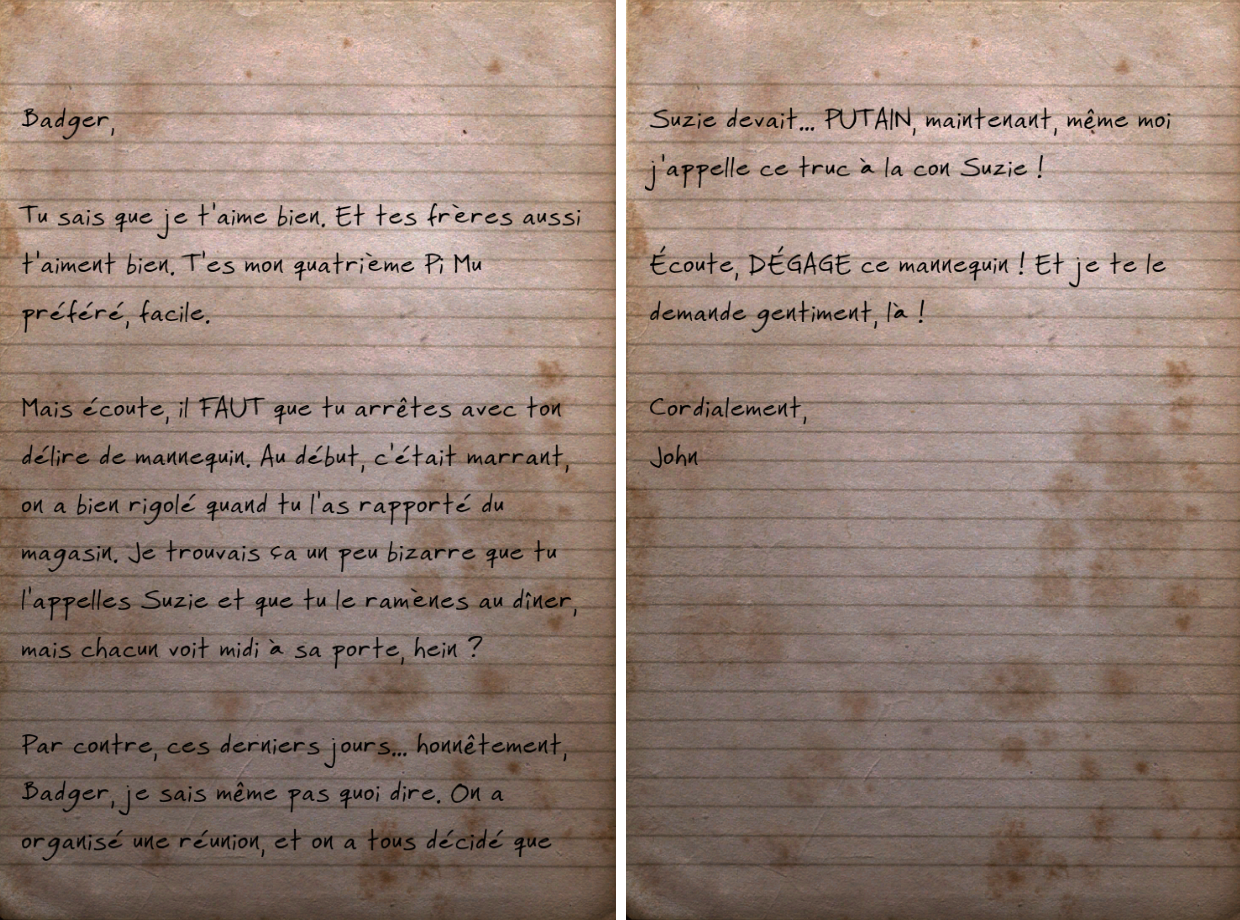 Badger,
Tu sais que je t'aime bien. Et tes frères aussi
t'aiment bien. T'es mon quatrième Pi Mu
préféré, facile.
Mais écoute, il FAUT que tu arrêtes avec ton
délire de mannequin. Au début, c'était marrant,
on a bien rigolé quand tu l'as rapporté du
magasin. Je trouvais ça un peu bizarre que tu
l'appelles Suzie et que tu le ramènes au dîner,
mais chacun voit midi à sa porte, hein ?
Par contre, ces derniers jours... honnêtement,
Badger, je sais même pas quoi dire. On a
organisé une réunion, et on a tous décidé que
Suzie devait... PUTAIN, maintenant, même moi
j'appelle ce truc à la con Suzie !
Écoute, DÉGAGE ce mannequin ! Et je te le
demande gentiment, là !
Cordialement,
John